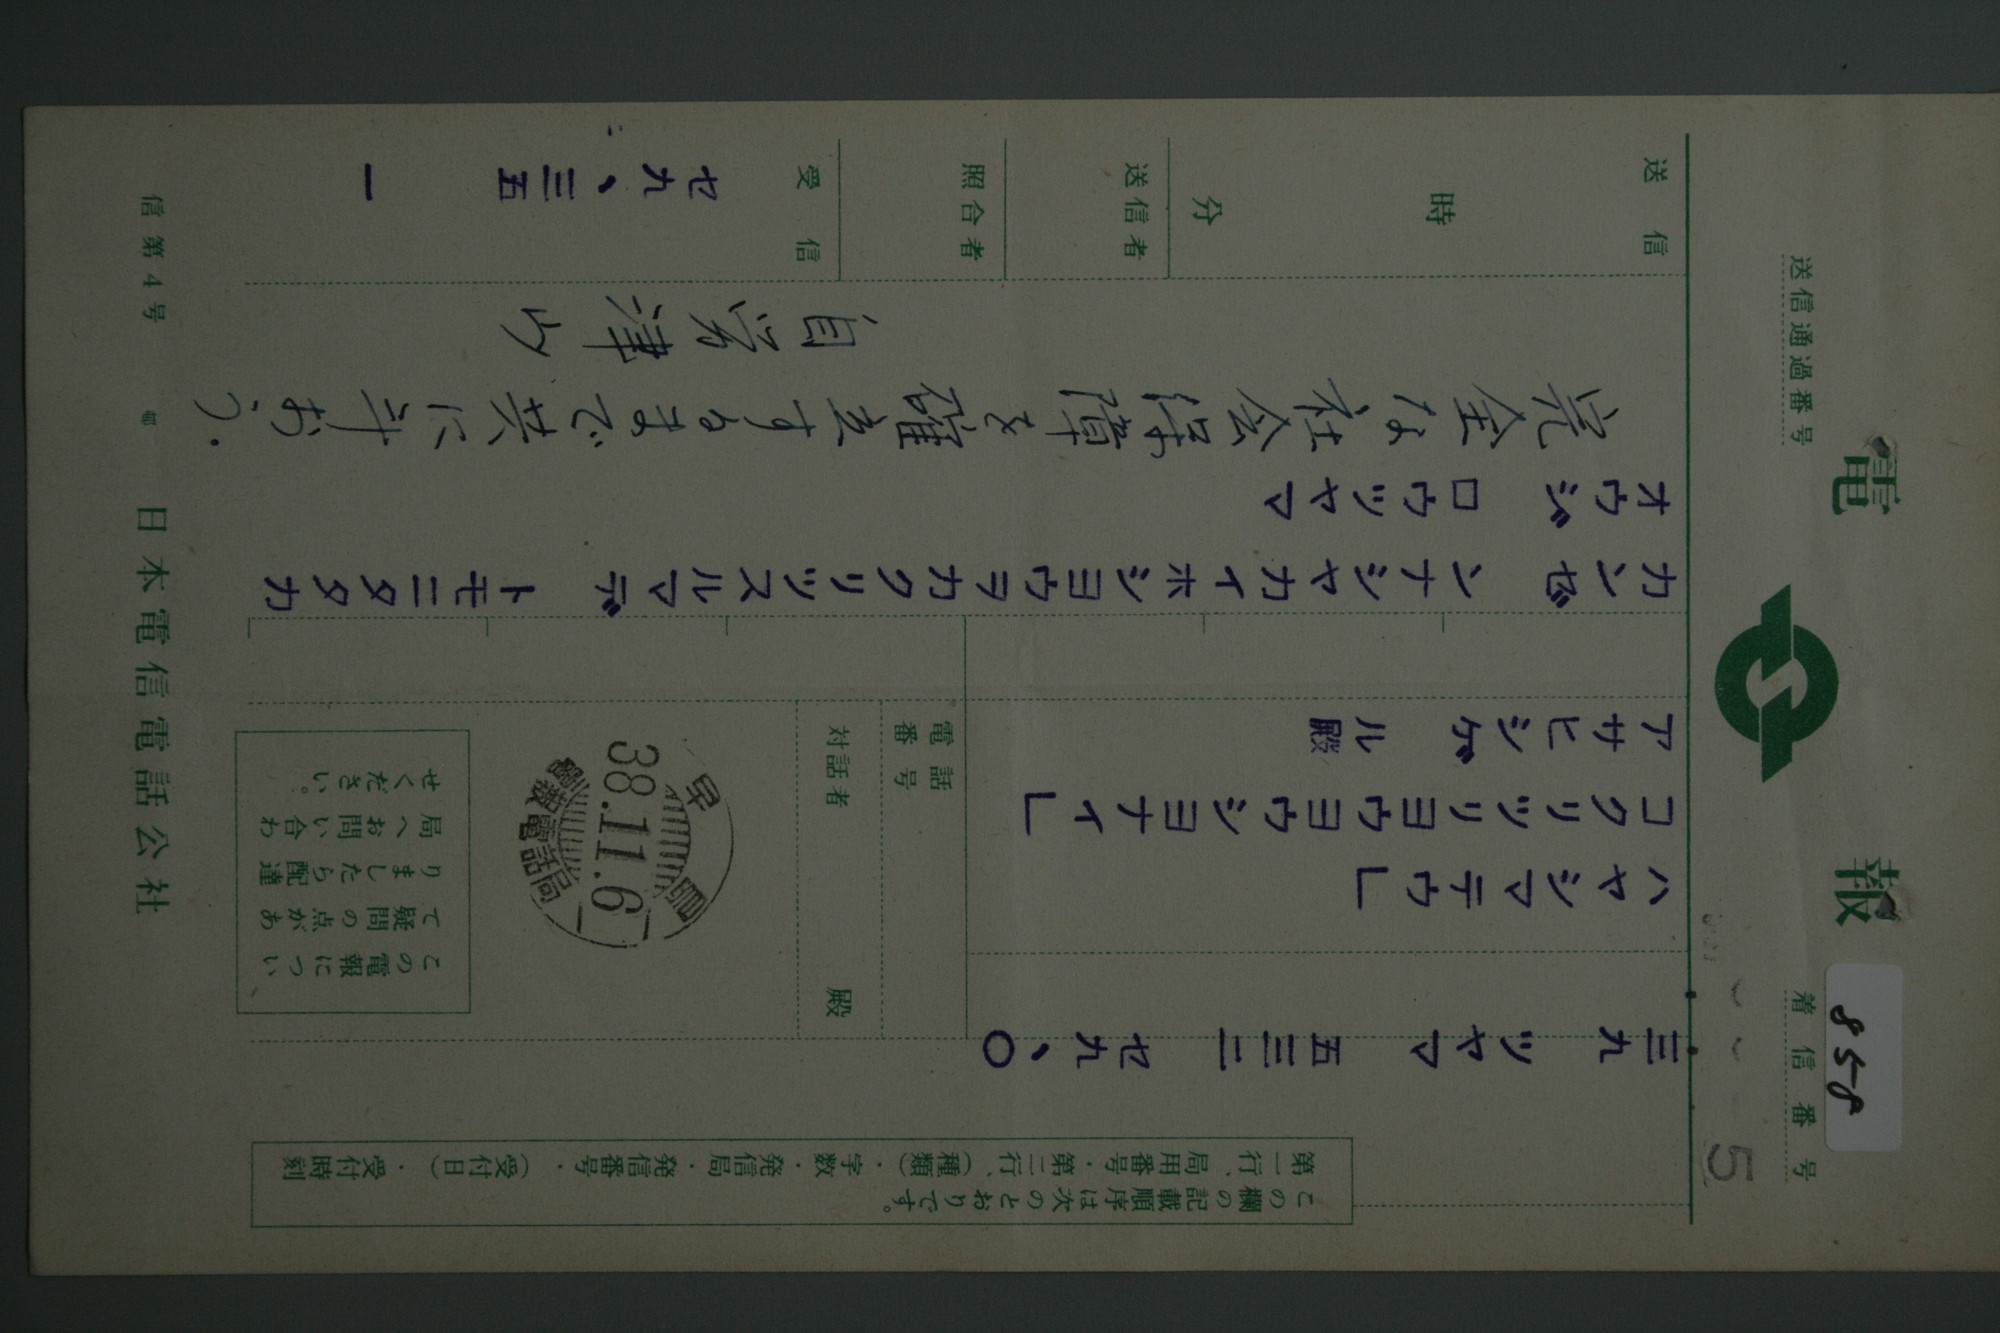 電報
送信通過番号
着信番号
858
5
この欄の記載順序は次のとおりです。
第一行、局用番号・第二行、(種類)・字数・発信局・発信番号・(受付日)・受付時刻
三九 ツヤマ 五三二 セ九、〇
ハヤシマテウ」
コクリツリヨウヨウシヨナイ」
アサヒシゲル殿
電話番号
対話者 殿
早島
38.11.6
電報電話局
この電報につい
て疑問の点があ
りましたら配達
局へお問い合わ
せください。
カンゼンナシヤカイホシヨウヲカクリツスルマデトモニタタカ
オウジロウツヤマ
完全な社会保障を確立するまで共に斗おう.
自労津山
送信
時
分
送信者
照合者
受信
セ九、三五 一
信第4号
日本電信電話公社